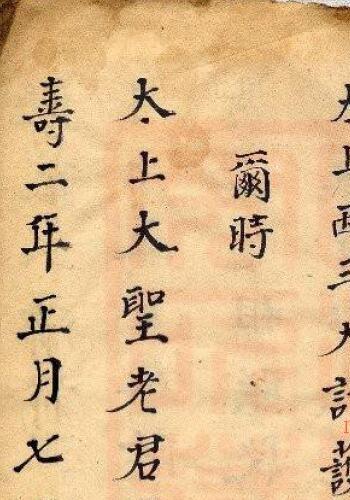 爾時
太上大聖老君
壽二年正月七